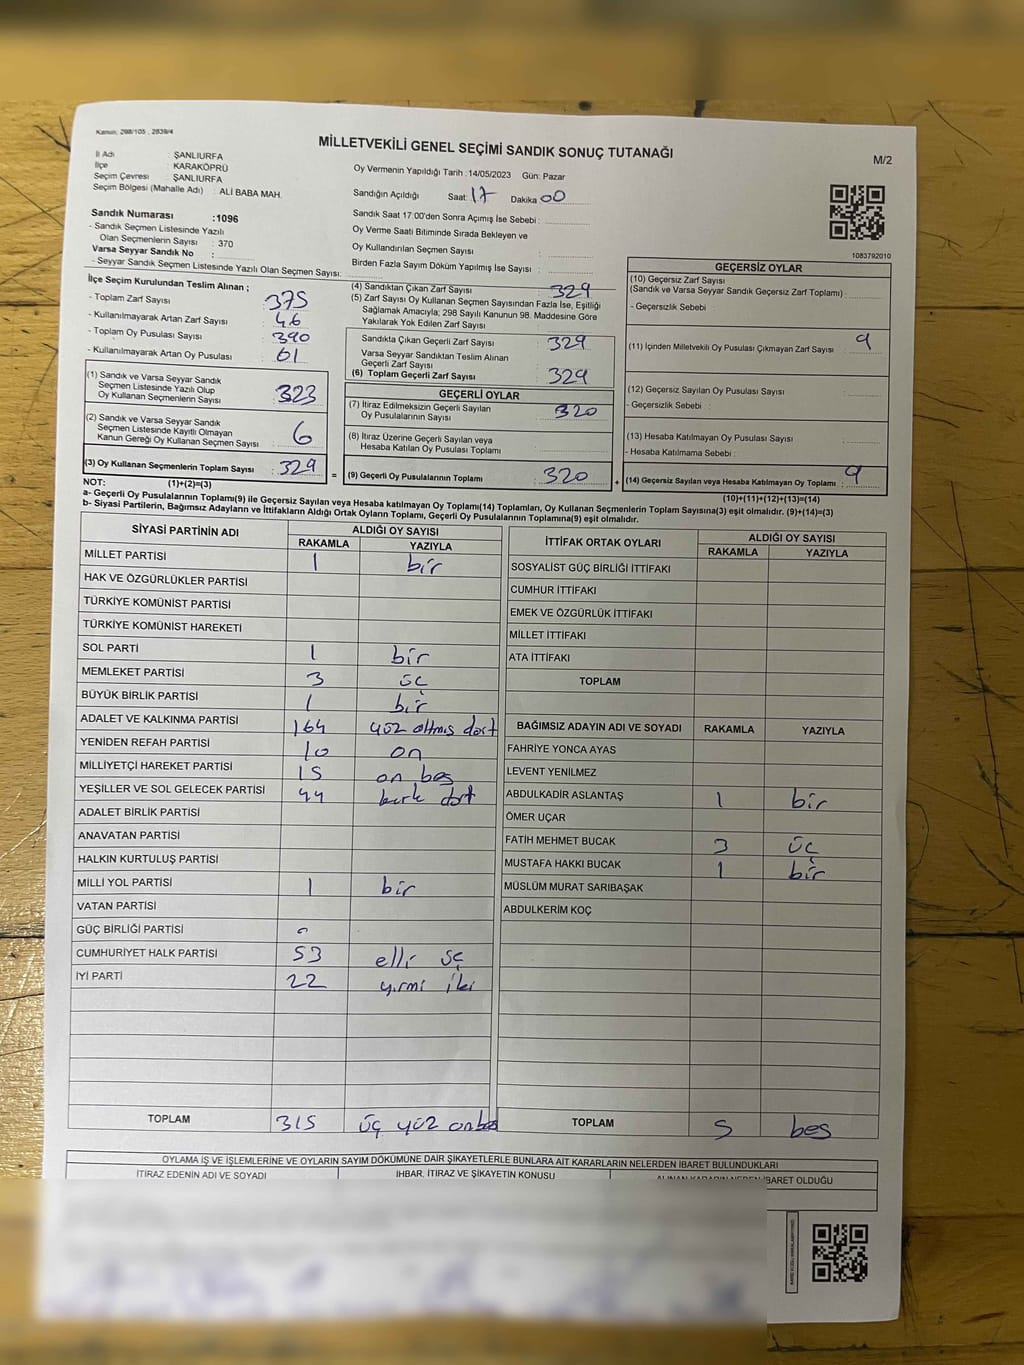 Kanun: 298/105 , 2839/4
MİLLETVEKİLİ GENEL SEÇİMİ SANDIK SONUÇ TUTANAĞI
M/2
İl Adı : ŞANLIURFA
İlçe : KARAKÖPRÜ
Seçim Çevresi : ŞANLIURFA
Seçim Bölgesi (Mahalle Adı) : ALİ BABA MAH.
Oy Vermenin Yapıldığı Tarih : 14/05/2023 Gün: Pazar
Sandığın Açıldığı Saat: 17 Dakika 00
Sandık Saat 17:00'den Sonra Açımış İse Sebebi :
Oy Verme Saati Bitiminde Sırada Bekleyen ve
Oy Kullandırılan Seçmen Sayısı :
Birden Fazla Sayım Döküm Yapılmış İse Sayısı :
Sandık Numarası :1096
- Sandık Seçmen Listesinde Yazılı
Olan Seçmenlerin Sayısı : 370
Varsa Seyyar Sandık No :
- Seyyar Sandık Seçmen Listesinde Yazılı Olan Seçmen Sayısı:
1083792010
İlçe Seçim Kurulundan Teslim Alınan ;
- Toplam Zarf Sayısı : 375
- Kullanılmayarak Artan Zarf Sayısı : 46
- Toplam Oy Pusulası Sayısı : 390
- Kullanılmayarak Artan Oy Pusulası : 61
(1) Sandık ve Varsa Seyyar Sandık
Seçmen Listesinde Yazılı Olup
Oy Kullanan Seçmenlerin Sayısı : 323
(2) Sandık ve Varsa Seyyar Sandık
Seçmen Listesinde Kayıtlı Olmayan
Kanun Gereği Oy Kullanan Seçmen Sayısı : 6
(3) Oy Kullanan Seçmenlerin Toplam Sayısı : 329
(4) Sandıktan Çıkan Zarf Sayısı : 329
(5) Zarf Sayısı Oy Kullanan Seçmen Sayısından Fazla İse, Eşitliği
Sağlamak Amacıyla; 298 Sayılı Kanunun 98. Maddesine Göre
Yakılarak Yok Edilen Zarf Sayısı :
Sandıkta Çıkan Geçerli Zarf Sayısı : 329
Varsa Seyyar Sandıktan Teslim Alınan
Geçerli Zarf Sayısı
(6) Toplam Geçerli Zarf Sayısı : 329
GEÇERLİ OYLAR
(7) İtiraz Edilmeksizin Geçerli Sayılan
Oy Pusulalarının Sayısı : 320
(8) İtiraz Üzerine Geçerli Sayılan veya
Hesaba Katılan Oy Pusulası Toplamı :
= (9) Geçerli Oy Pusulalarının Toplamı : 320
GEÇERSİZ OYLAR
(10) Geçersiz Zarf Sayısı
(Sandık ve Varsa Seyyar Sandık Geçersiz Zarf Toplamı) :
- Geçersizlik Sebebi
(11) İçinden Milletvekili Oy Pusulası Çıkmayan Zarf Sayısı : 9
(12) Geçersiz Sayılan Oy Pusulası Sayısı :
- Geçersizlik Sebebi :
(13) Hesaba Katılmayan Oy Pusulası Sayısı :
- Hesaba Katılmama Sebebi :
+ (14) Geçersiz Sayılan veya Hesaba Katılmayan Oy Toplamı : 9
NOT: (1)+(2)=(3)
(10)+(11)+(12)+(13)=(14)
a- Geçerli Oy Pusulalarının Toplamı(9) ile Geçersiz Sayılan veya Hesaba katılmayan Oy Toplamı(14) Toplamları, Oy Kullanan Seçmenlerin Toplam Sayısına(3) eşit olmalıdır. (9)+(14)=(3)
b- Siyasi Partilerin, Bağımsız Adayların ve İttifakların Aldığı Ortak Oyların Toplamı, Geçerli Oy Pusulalarının Toplamına(9) eşit olmalıdır.
SİYASİ PARTİNİN ADI ALDIĞI OY SAYISI
RAKAMLA YAZIYLA
MİLLET PARTİSİ 1 bir
HAK VE ÖZGÜRLÜKLER PARTİSİ
TÜRKİYE KOMÜNİST PARTİSİ
TÜRKİYE KOMÜNİST HAREKETİ
SOL PARTİ 1 bir
MEMLEKET PARTİSİ 3 üç
BÜYÜK BİRLİK PARTİSİ 1 bir
ADALET VE KALKINMA PARTİSİ 164 yüz altmış dört
YENİDEN REFAH PARTİSİ 10 on
MİLLİYETÇİ HAREKET PARTİSİ 15 on beş
YEŞİLLER VE SOL GELECEK PARTİSİ 44 kırk dört
ADALET BİRLİK PARTİSİ
ANAVATAN PARTİSİ
HALKIN KURTULUŞ PARTİSİ
MİLLİ YOL PARTİSİ 1 bir
VATAN PARTİSİ
GÜÇ BİRLİĞİ PARTİSİ
CUMHURİYET HALK PARTİSİ 53 elli üç
İYİ PARTİ 22 yirmi iki
TOPLAM 315 üç yüz onbeş
İTTİFAK ORTAK OYLARI ALDIĞI OY SAYISI
RAKAMLA YAZIYLA
SOSYALİST GÜÇ BİRLİĞİ İTTİFAKI
CUMHUR İTTİFAKI
EMEK VE ÖZGÜRLÜK İTTİFAKI
MİLLET İTTİFAKI
ATA İTTİFAKI
TOPLAM
BAĞIMSIZ ADAYIN ADI VE SOYADI RAKAMLA YAZIYLA
FAHRİYE YONCA AYAS
LEVENT YENİLMEZ
ABDULKADİR ASLANTAŞ 1 bir
ÖMER UÇAR
FATİH MEHMET BUCAK 3 üç
MUSTAFA HAKKI BUCAK 1 bir
MÜSLÜM MURAT SARIBAŞAK
ABDULKERİM KOÇ
TOPLAM 5 beş
OYLAMA İŞ VE İŞLEMLERİNE VE OYLARIN SAYIM DÖKÜMÜNE DAİR ŞİKAYETLERLE BUNLARA AİT KARARLARIN NELERDEN İBARET BULUNDUKLARI
İTİRAZ EDENİN ADI VE SOYADI İHBAR, İTİRAZ VE ŞİKAYETİN KONUSU ALINAN KARARIN NEDEN İBARET OLDUĞU